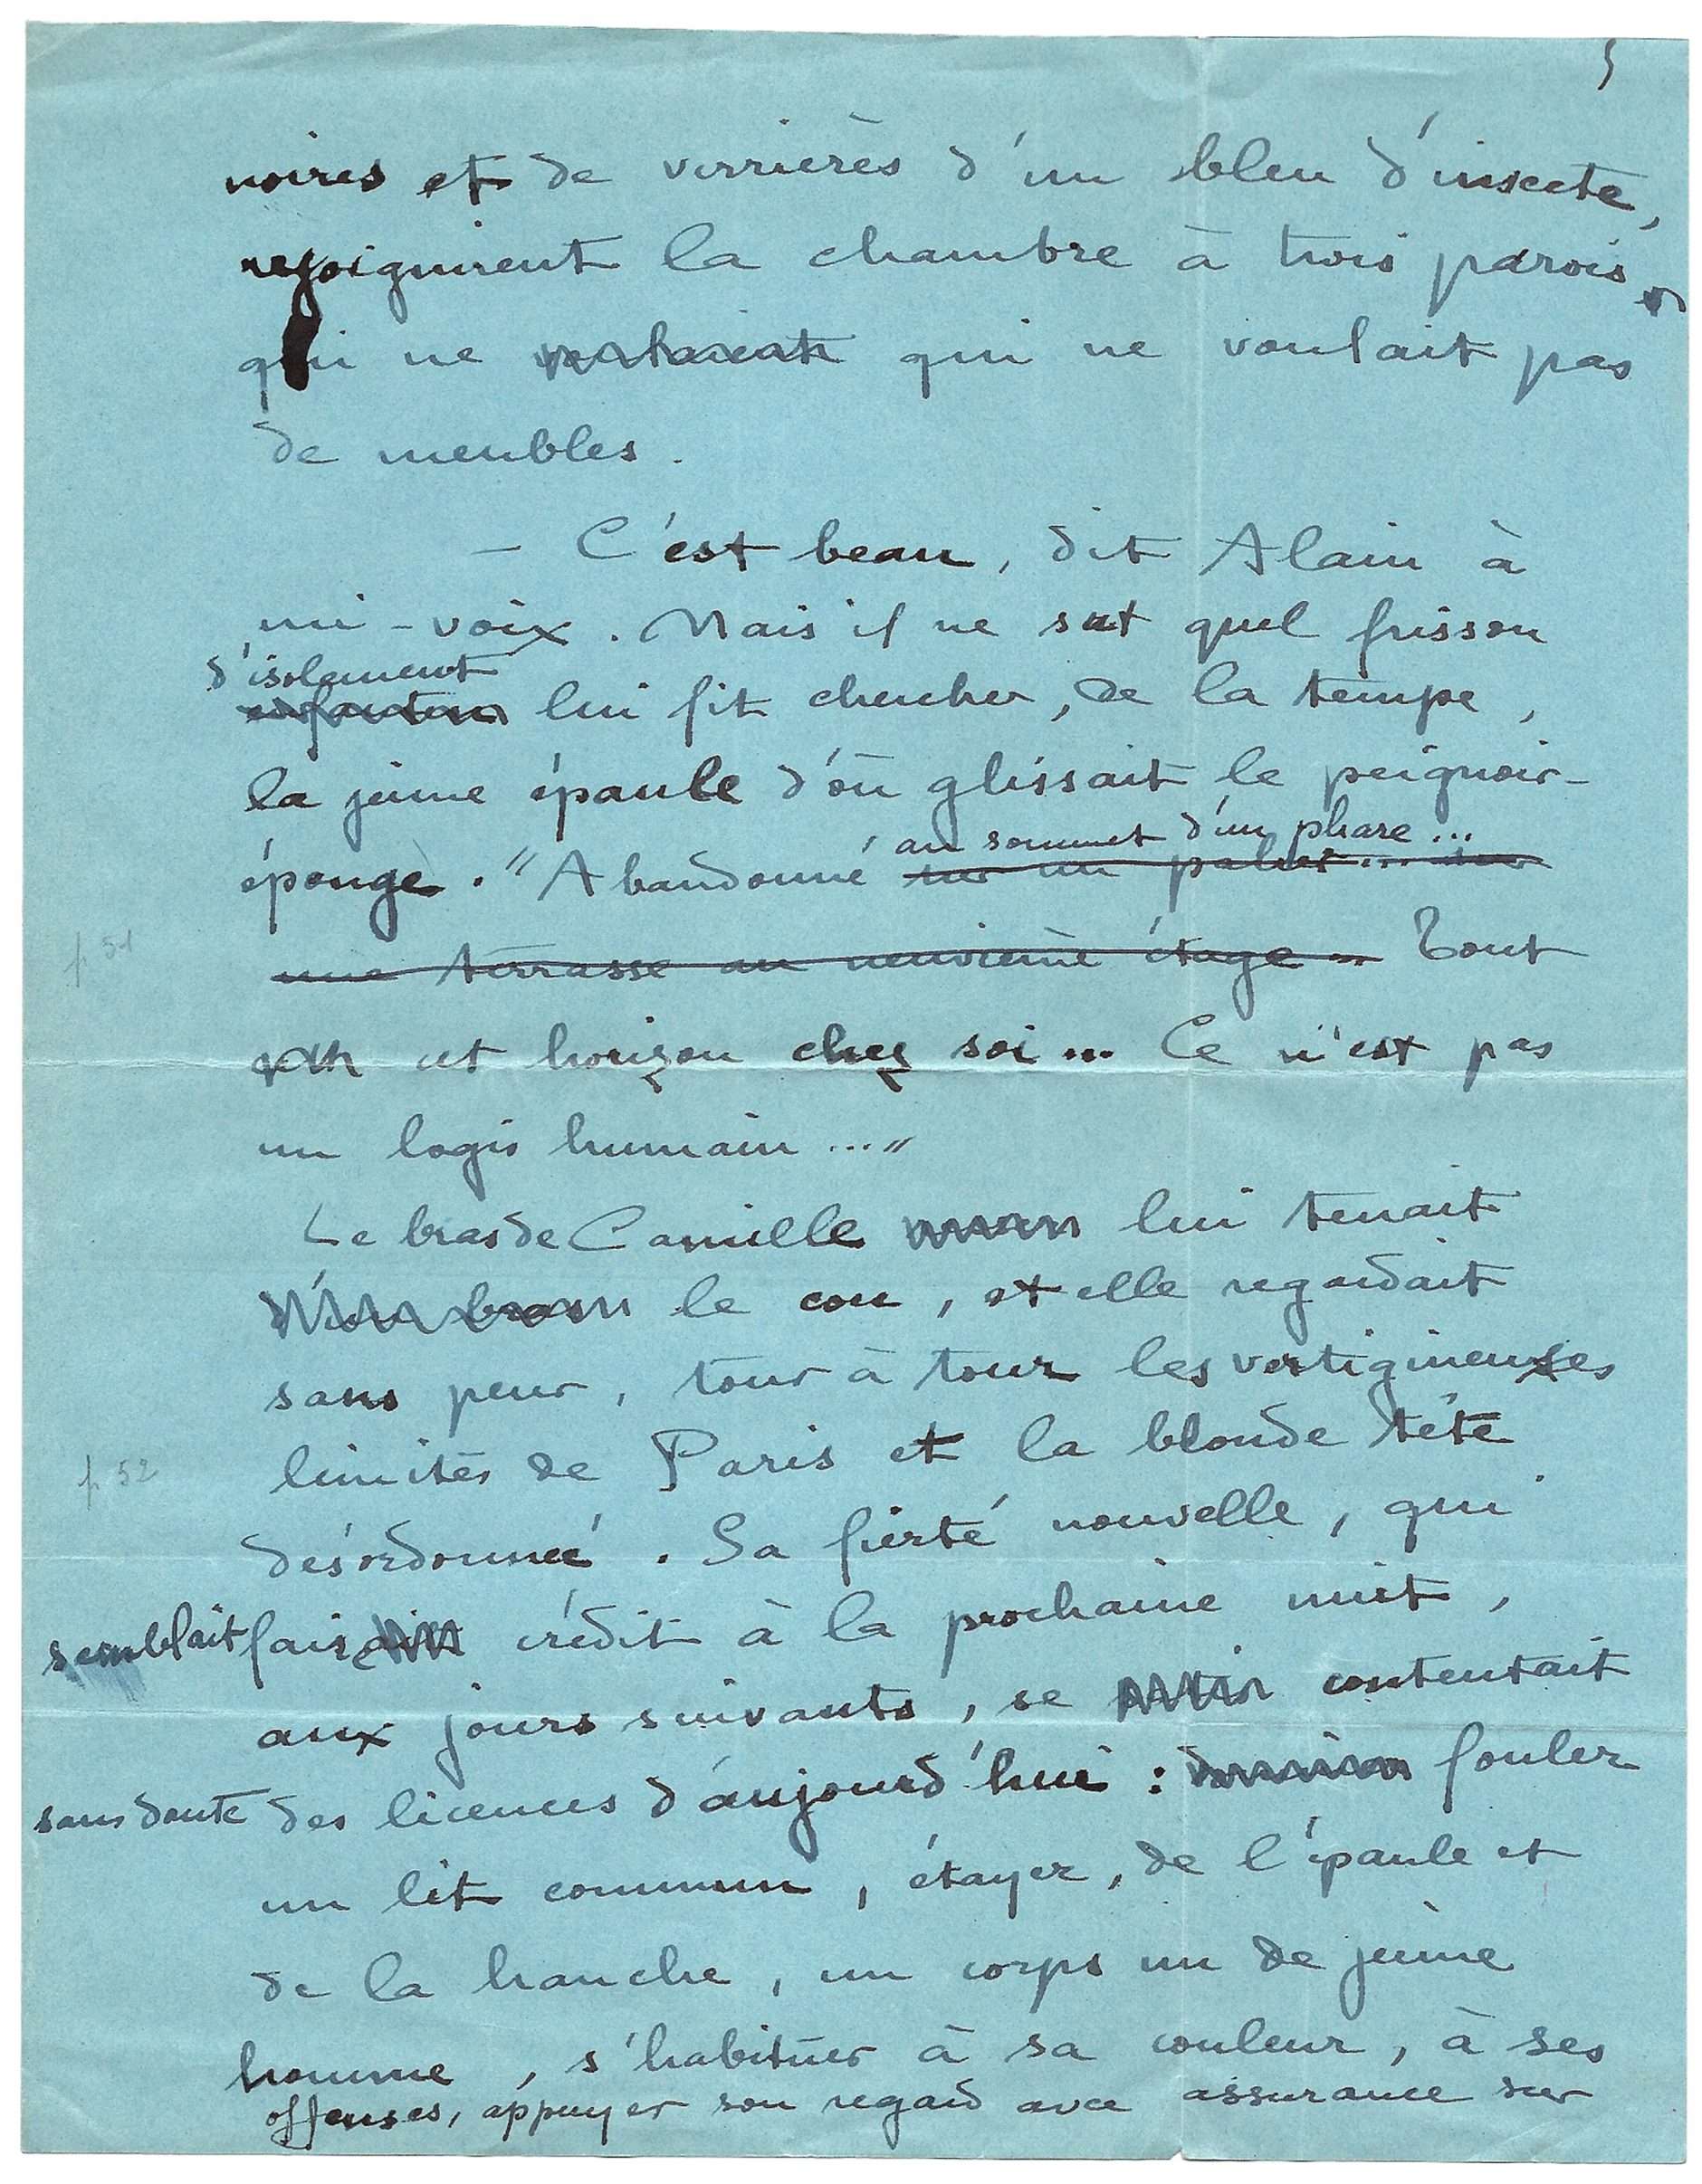 5
noires et de verrières d'un bleu d'insecte,
rejoignirent la chambre à trois parois,
qui ne voulait qui ne voulait pas
de meubles.
— C'est beau, dit Alain à
mi-voix. Mais il ne sut quel frisson
d'isolement
enfantin lui fit chercher, de la tempe,
la jeune épaule d'où glissait le peignoir-
au sommet d'un phare...
éponge. "Abandonné sur un palier... sur
p 51
une terrasse au neuvième étage... Tout
cet horizon chez soi... Ce n'est pas
un logis humain..."
Le bras de Camille lui tenait
d'un bras le cou, et elle regardait
sans peur, tour à tour les vertigineuses
p 52
limites de Paris et la blonde tête
désordonnée. Sa fierté nouvelle, qui
semblait faire crédit à la prochaine nuit,
aux jours suivants, se contentait
sans doute des licences d'aujourd'hui : fouler
un lit commun, étayer, de l'épaule et
de la hanche, un corps nu de jeune
homme, s'habituer à sa couleur, à ses
offenses, appuyer son regard avec assurance sur